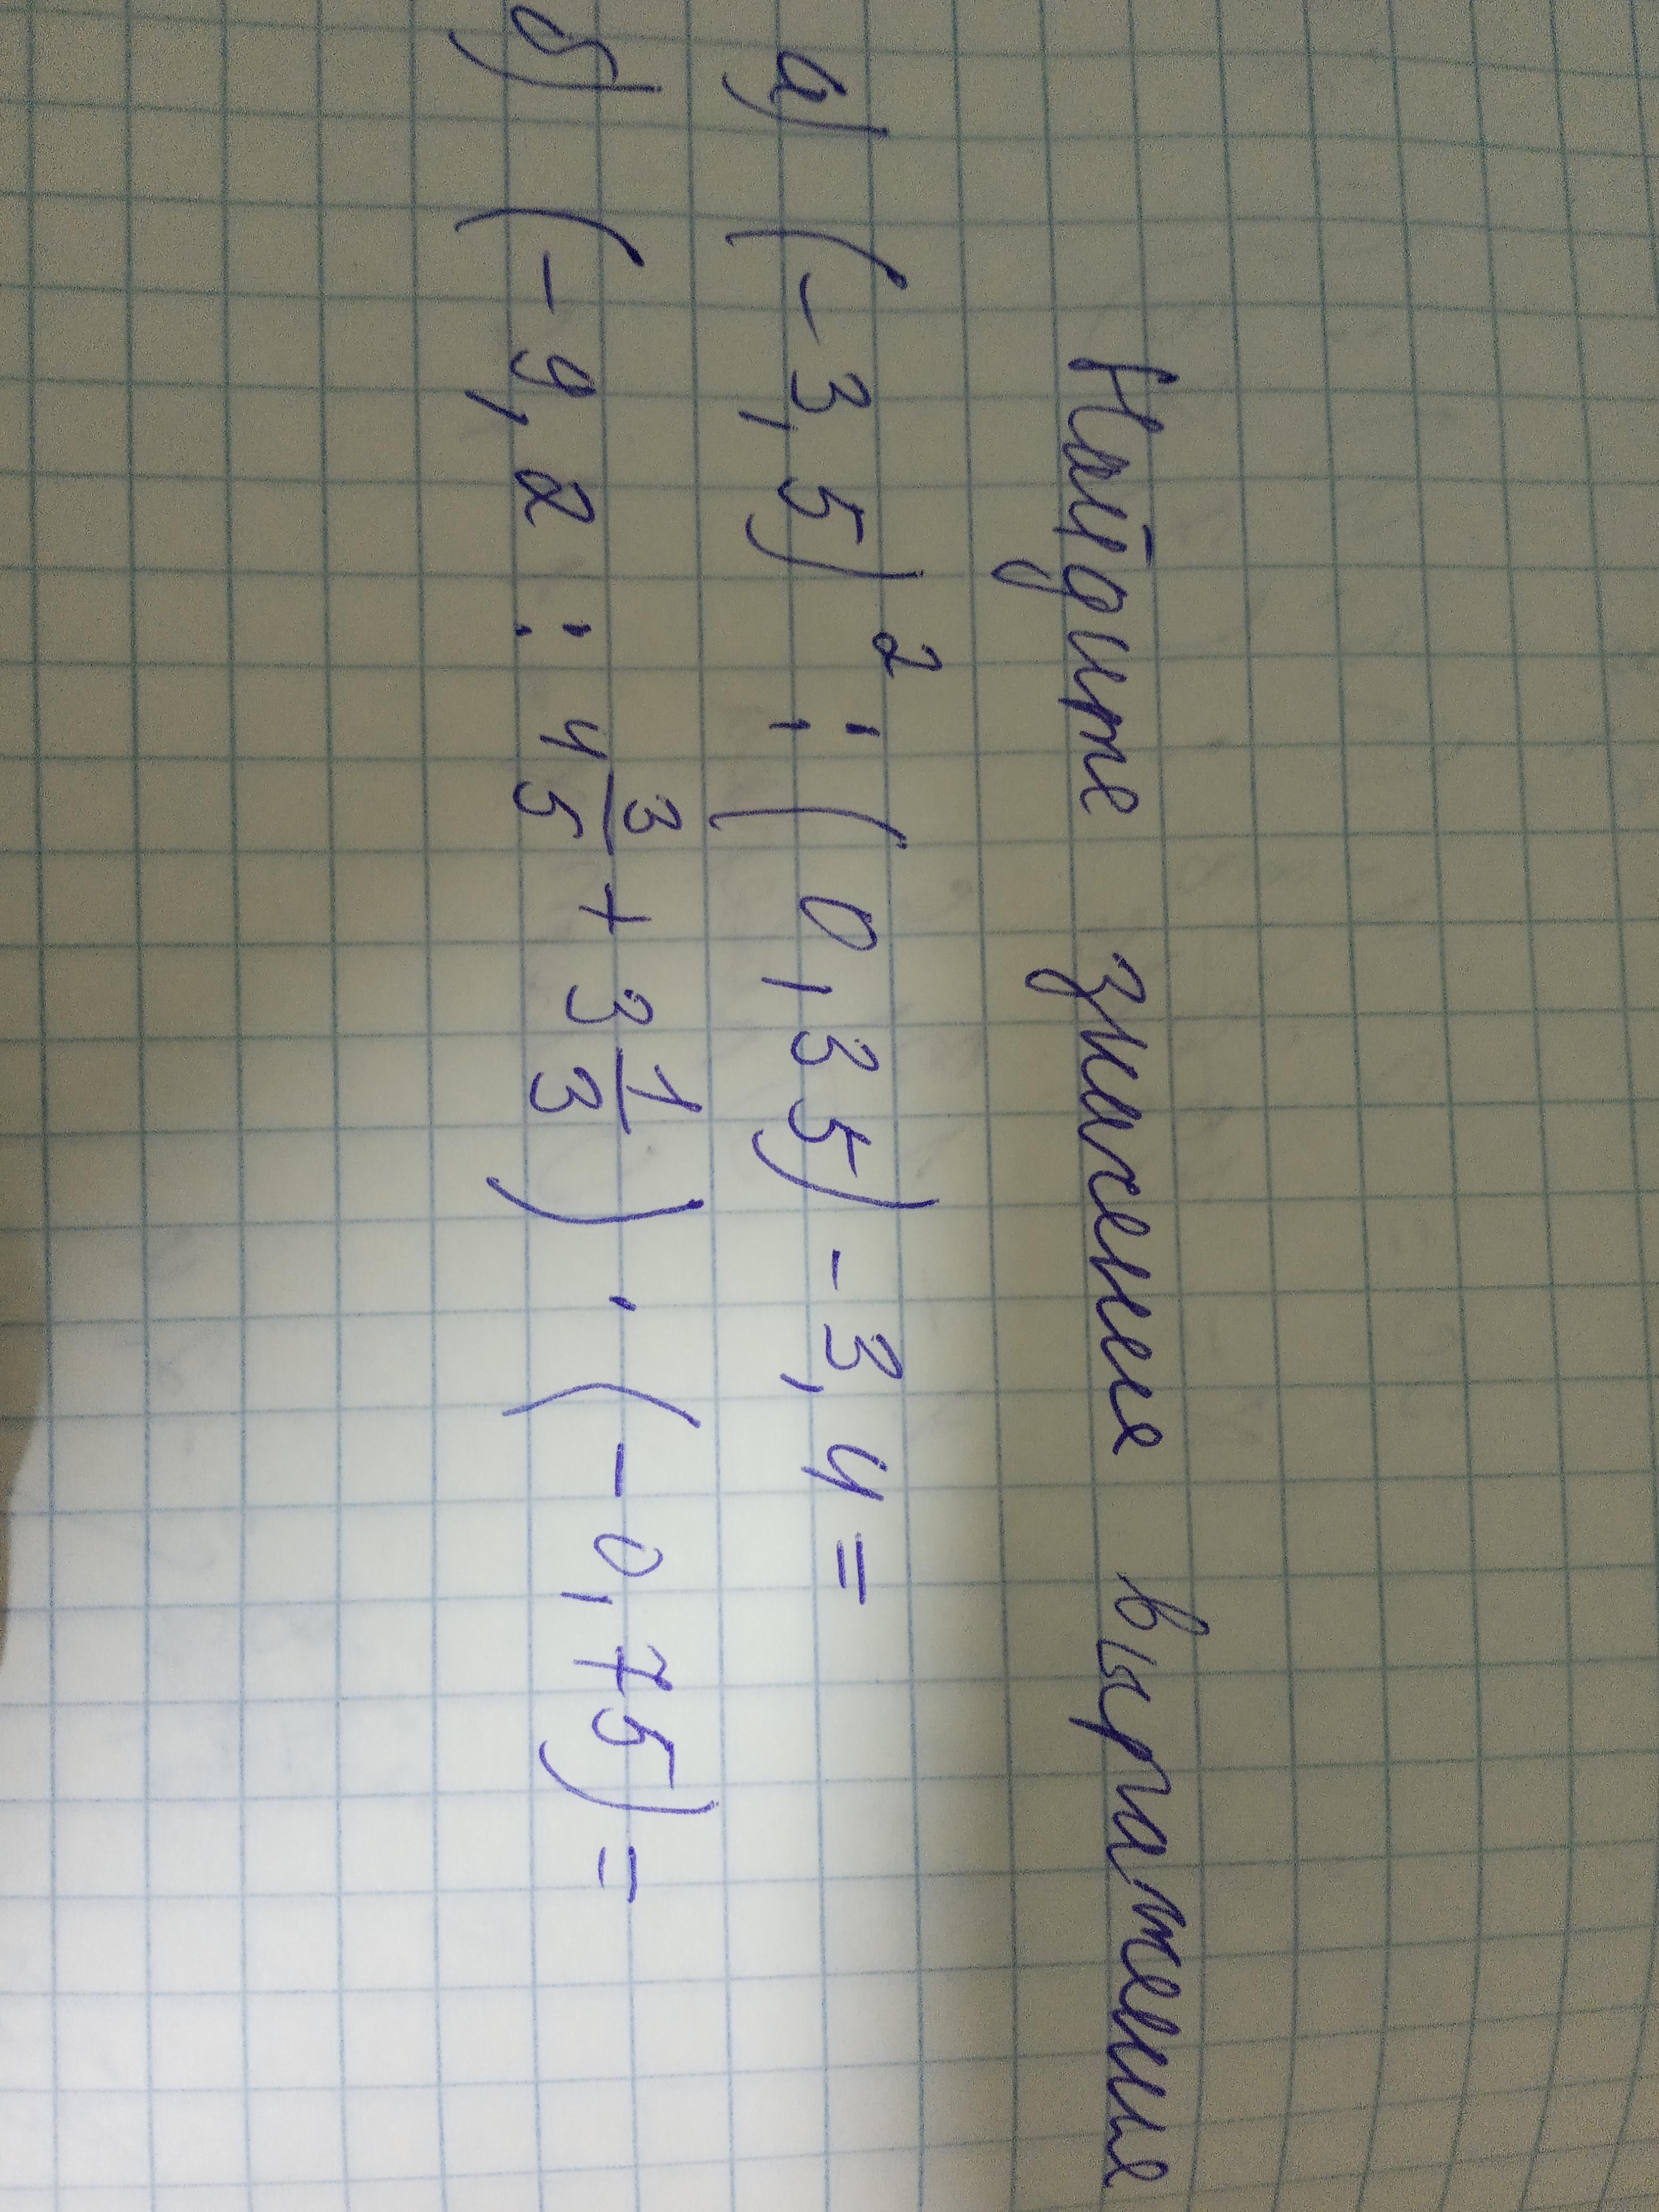 Найдите значение выражения
а) (-3,5)² : (0,35) - 3,4 =
б) (-9,2 : 4 3/5 + 3 1/3) · (-0,75) =